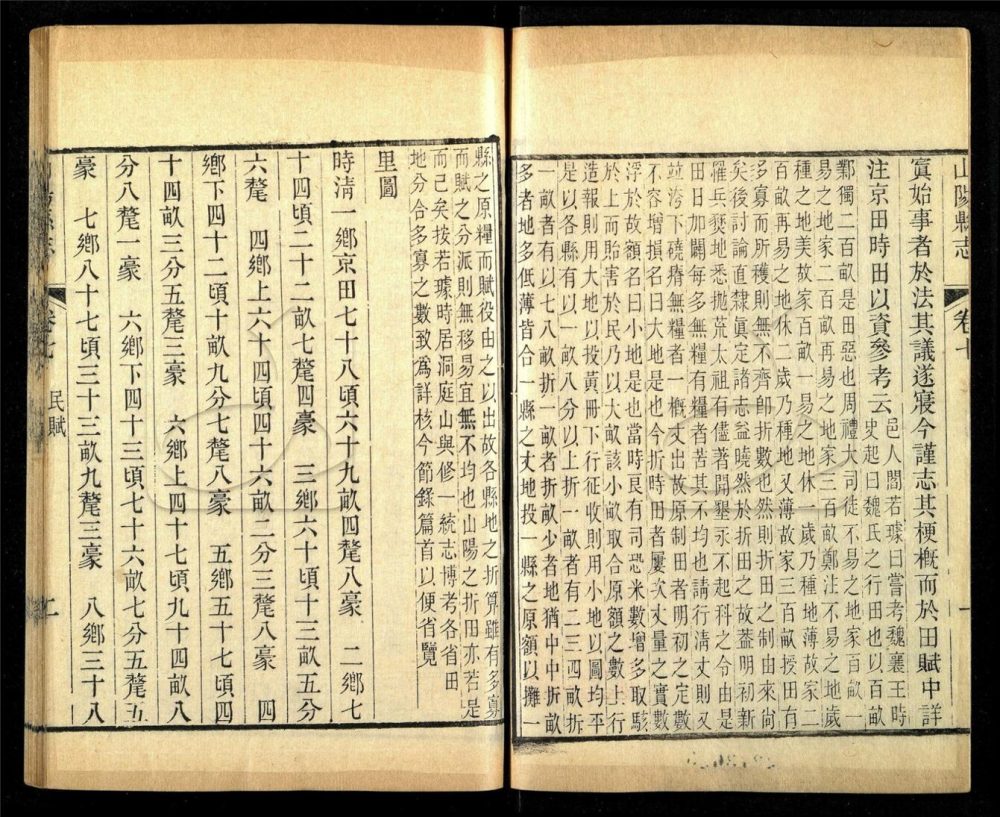 山陽縣志
卷七
一
寘始事者於法其議遂寢今謹志其梗槪而於田賦中詳
注京田時田以資參考云邑人閻若璩曰嘗考魏襄王時
史起曰魏氏之行田也以百畝
鄴獨二百畝是田惡也周禮大司徒不易之地家百畝一
易之地家二百畝再易之地家三百畝鄭注不易之地歲
種之地美故家百畝一易之地休一歲乃種地薄故家二
百畝再易之地休二歲乃種地又薄故家三百畝授田有
多寡而所穫則無不齊卽折數也然則折田之制由來尙
矣後討論直隸眞定諸志益曉然於折田之故蓋明初新
罹兵燹地悉拋荒太祖有儘著開墾永不起科之令由是
田日加闢每多無糧有糧者苦其不均也請行淸丈則又
竝洿下磽瘠無糧者一概丈出故原制田者明初之定數
不容增損名曰大地是也今折時田者屢次丈量之實數
浮於故額名曰小地是也當時良有司恐米數增多取駭
於上而貽害於民乃以大畝該小畝取合原額之數上行
造報則用大地以投黃冊下行征收則用小地以圖均平
是以各縣有以一畝八分以上折一畝者有二三四畝折
一畝者有以七八畝折一畝者折畝少者地猶中中折畝
多者地多低薄皆合一縣之丈地投一縣之原額以攤一
縣之原糧而賦役由之以出故各縣地之折算雖有多寡
而賦之分派則無移易宜無不均也山陽之折田亦若是
而已矣按若璩時居洞庭山與修一統志博考各省田
地分合多寡之數致爲詳核今節錄篇首以便省覽
里圖
時淸一鄕京田七十八頃六十九畝四氂八豪　二鄕七
十四頃二十二畝七氂四豪　三鄕六十頃十三畝五分
六氂　四鄕上六十四頃四十六畝二分三氂八豪　四
鄕下四十二頃十畝九分七氂八豪　五鄕五十七頃四
十四畝三分五氂三豪　六鄕上四十七頃九十四畝八
分八氂一豪　六鄕下四十三頃七十六畝七分五氂五
豪　七鄕八十七頃三十三畝九氂三豪　八鄕三十八
卷七
民賦